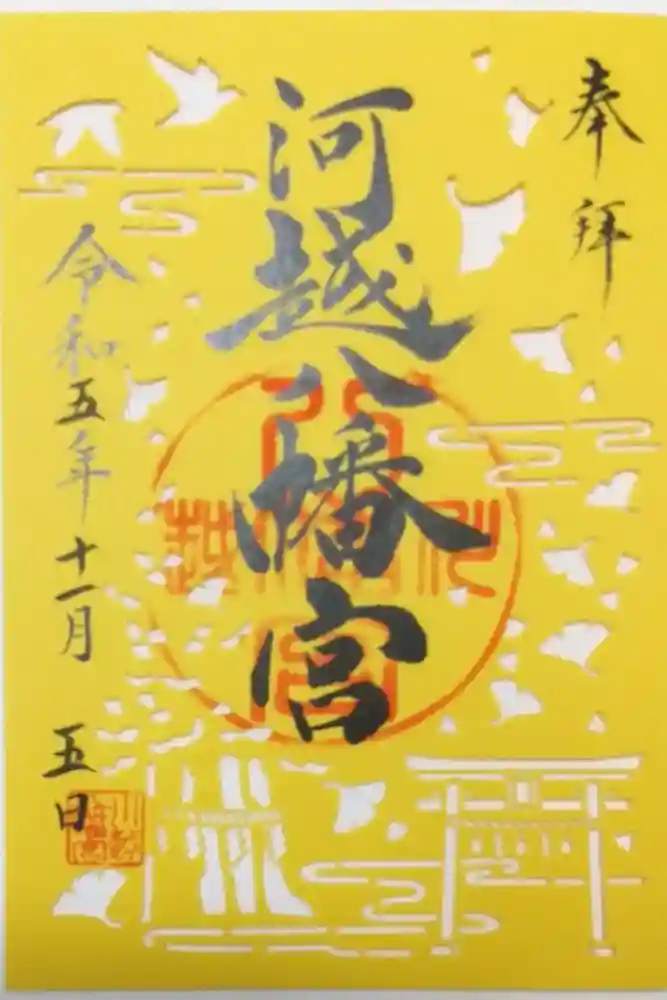 奉拝
河越八幡宮
令和五年十一月五日